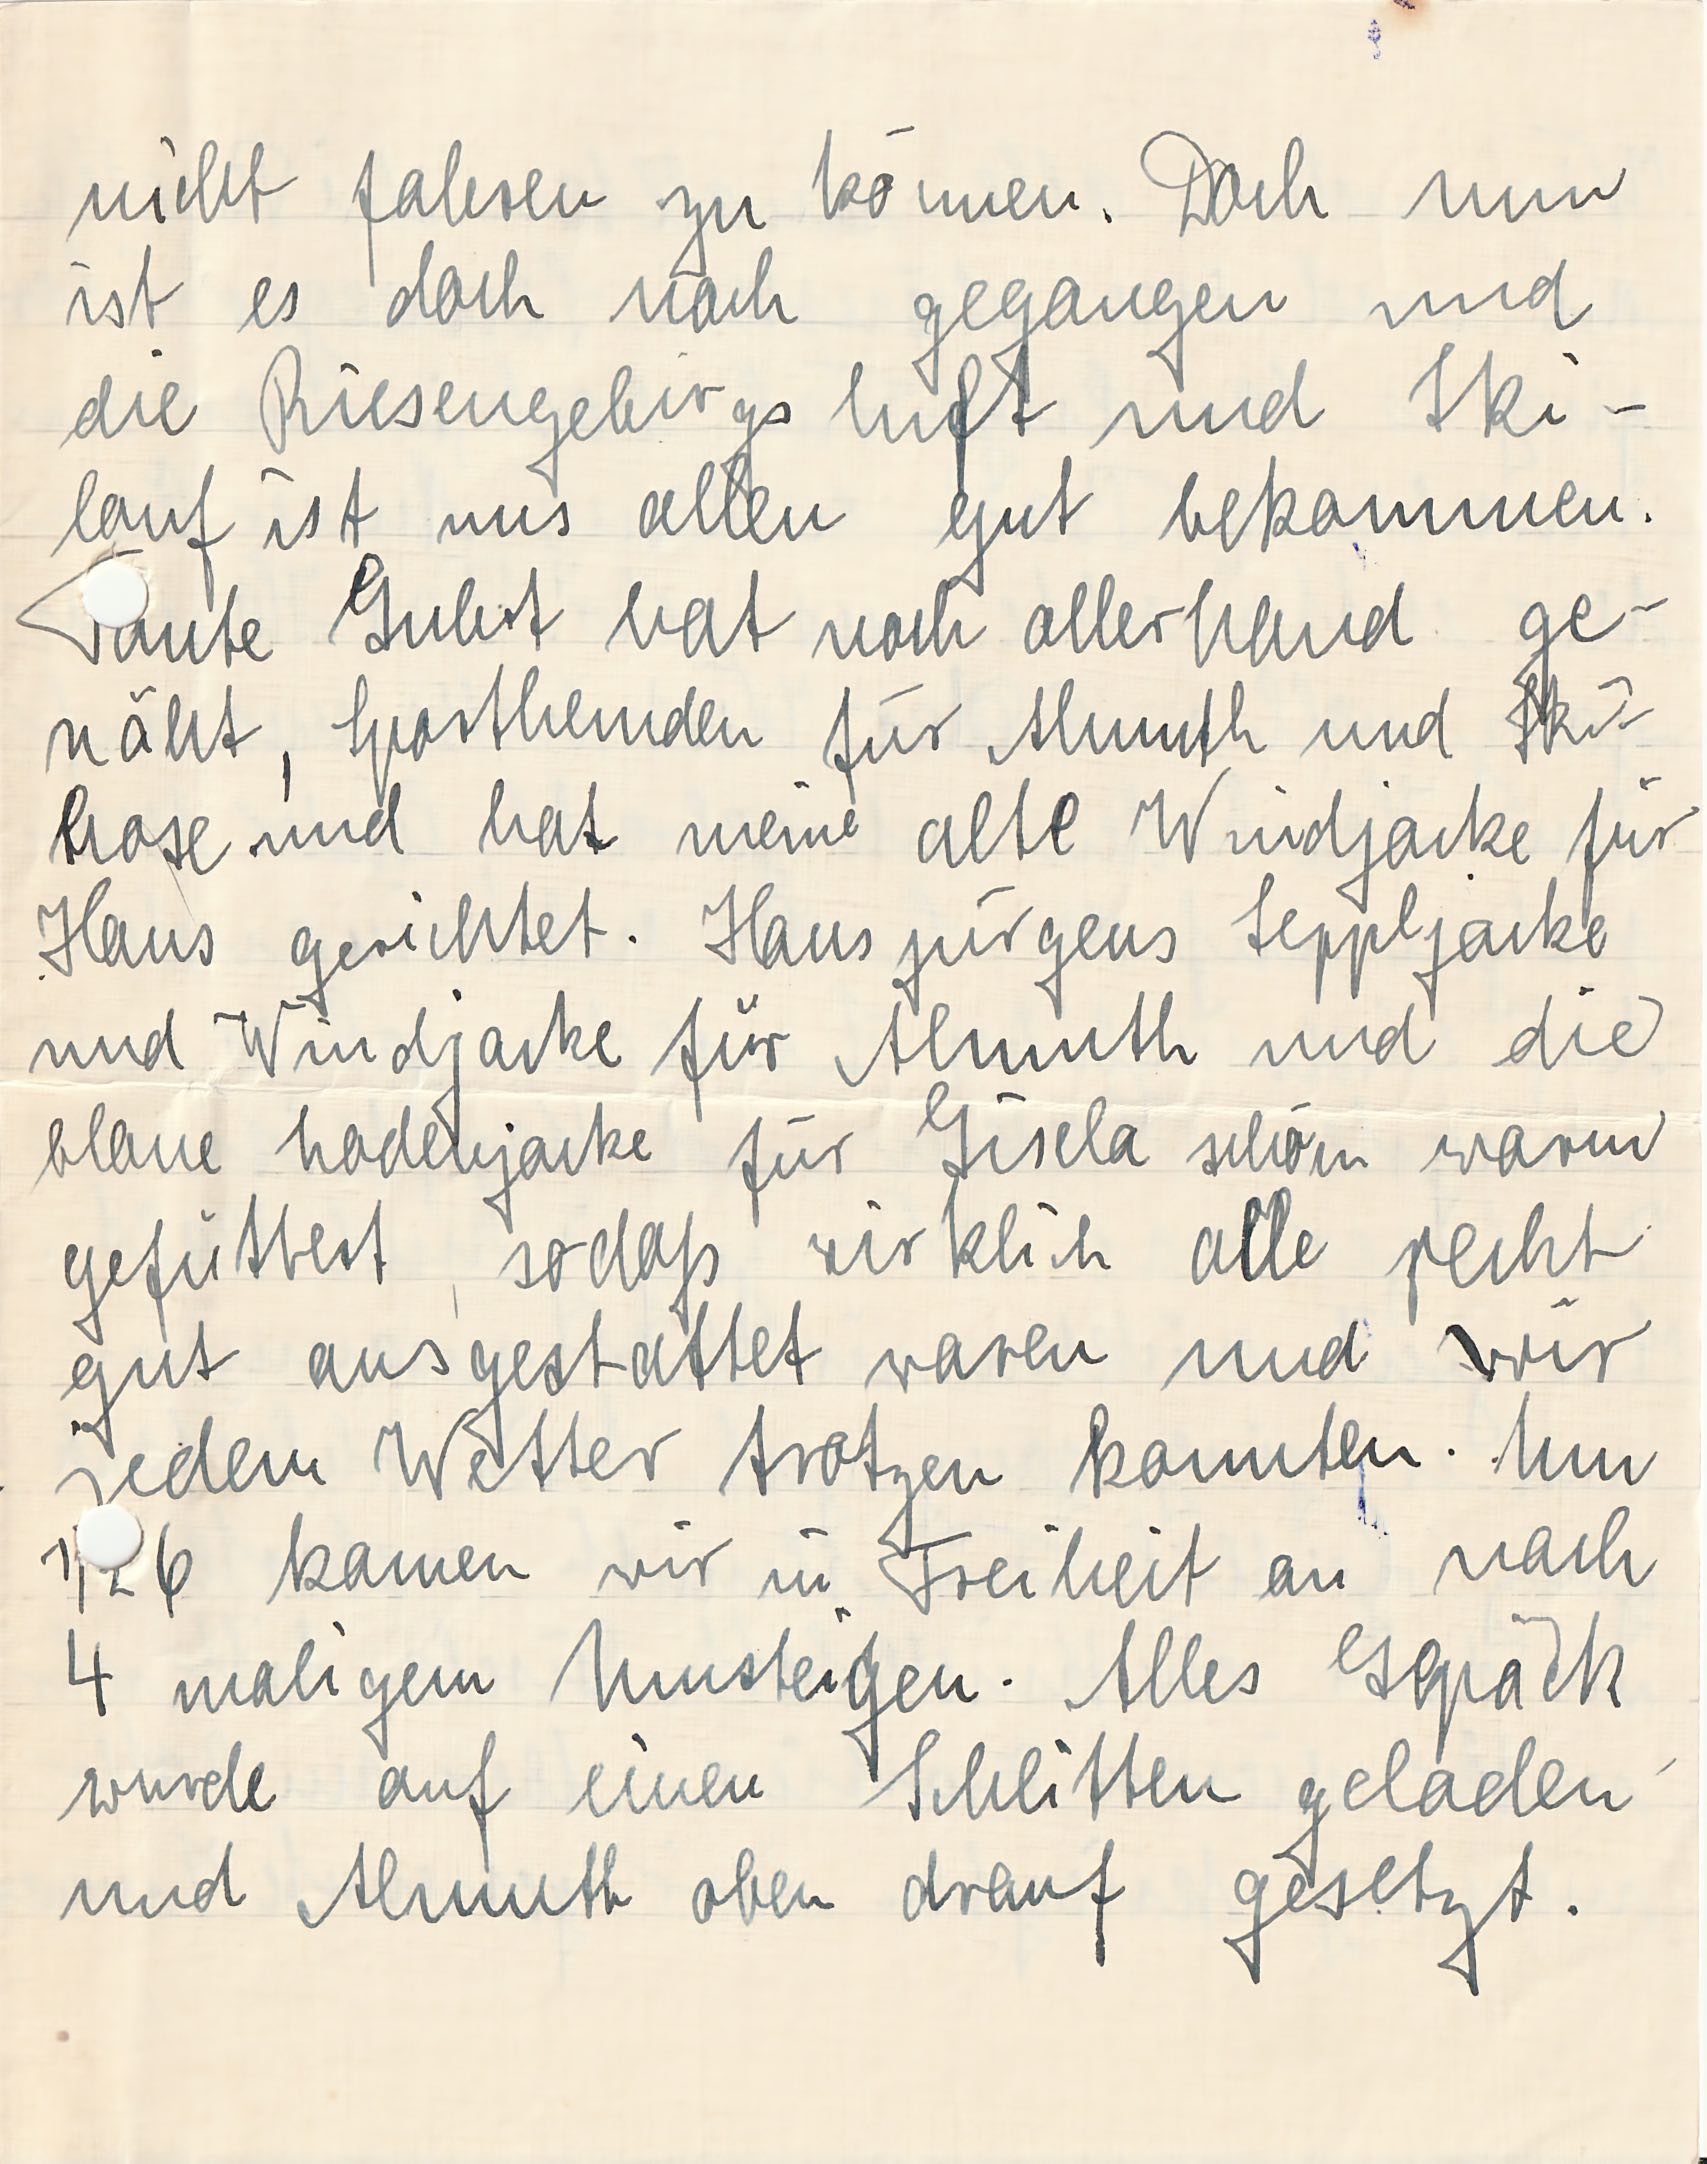 nicht fahren zu können. Doch nun
ist es doch noch gegangen und
die Riesengebirgsluft und Ski-
lauf ist uns allen gut bekommen.
Tante hat noch allerhand ge-
näht, Sporthemden für Almuth und Ski-
hose und hat meine alte Windjacke für
Hans gerichtet. Hansjürgens Seppljacke
und Windjacke für Almuth und die
blaue Lodenjacke für Gisela schön warm
gefüttert, sodaß wirklich alle recht
gut ausgestattet waren und wir
jedem Wetter trotzen konnten. Um
1/2 6 kamen wir in Freiheit an nach
4 maligem Umsteigen. Alles Gepäck
wurde auf einen Schlitten geladen
und Almuth oben drauf gesetzt.